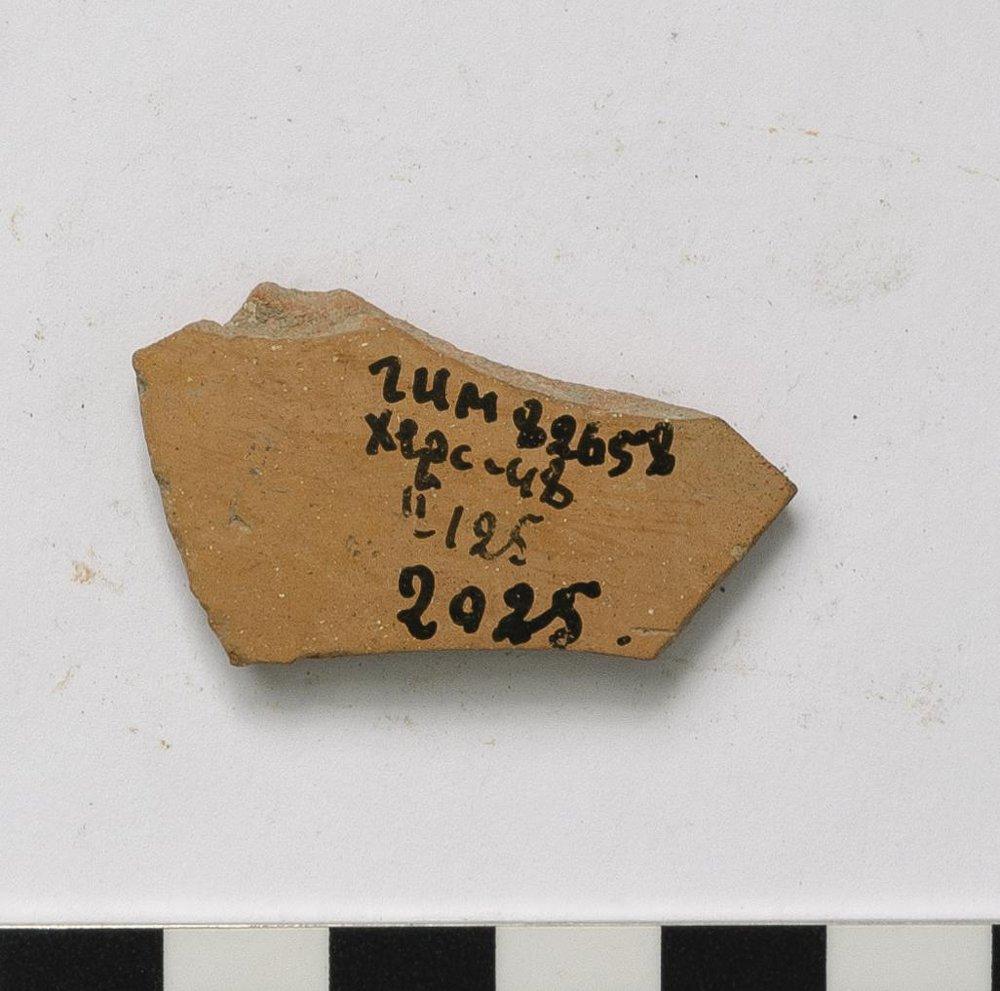 ГИМ 82658
Херс-48
II-125
2025.